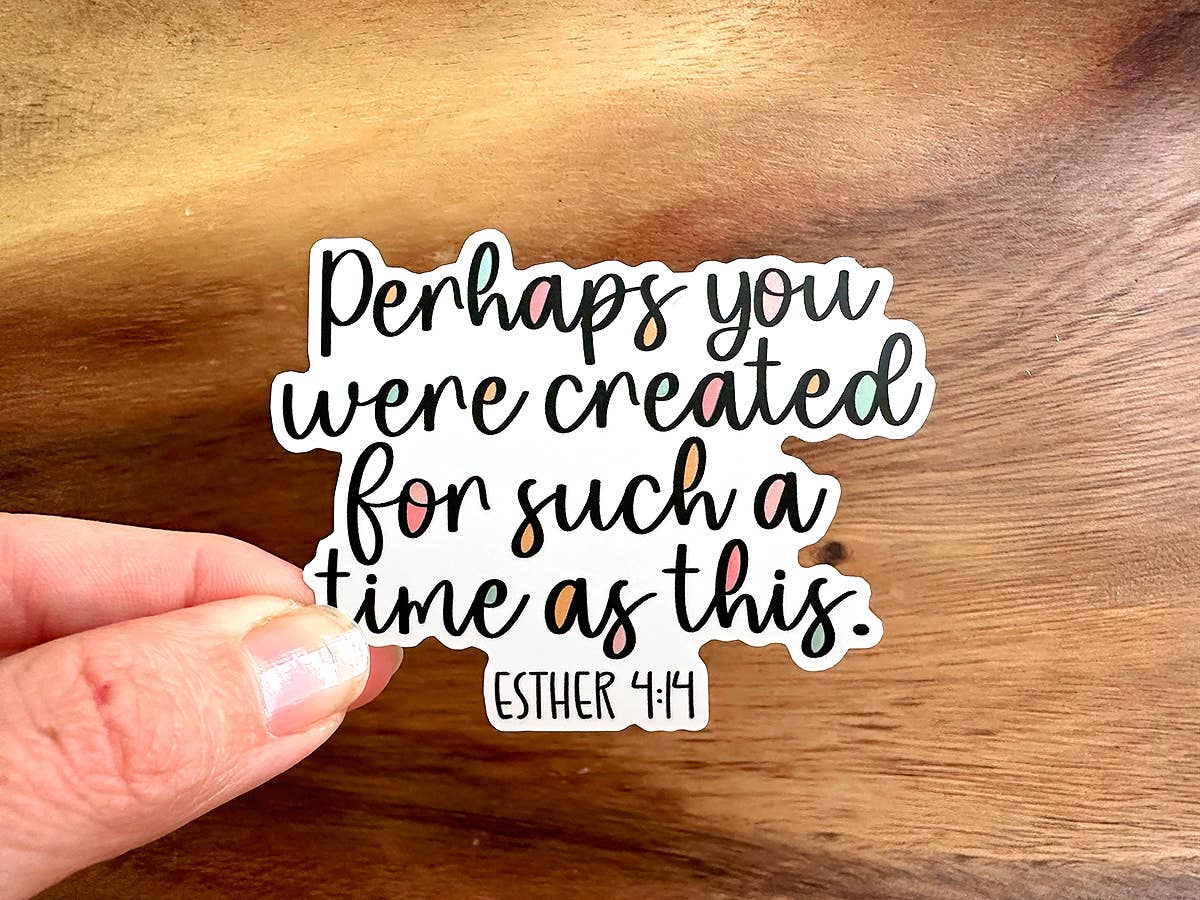 Perhaps you
were created
for such a
time as this.
ESTHER 4:14